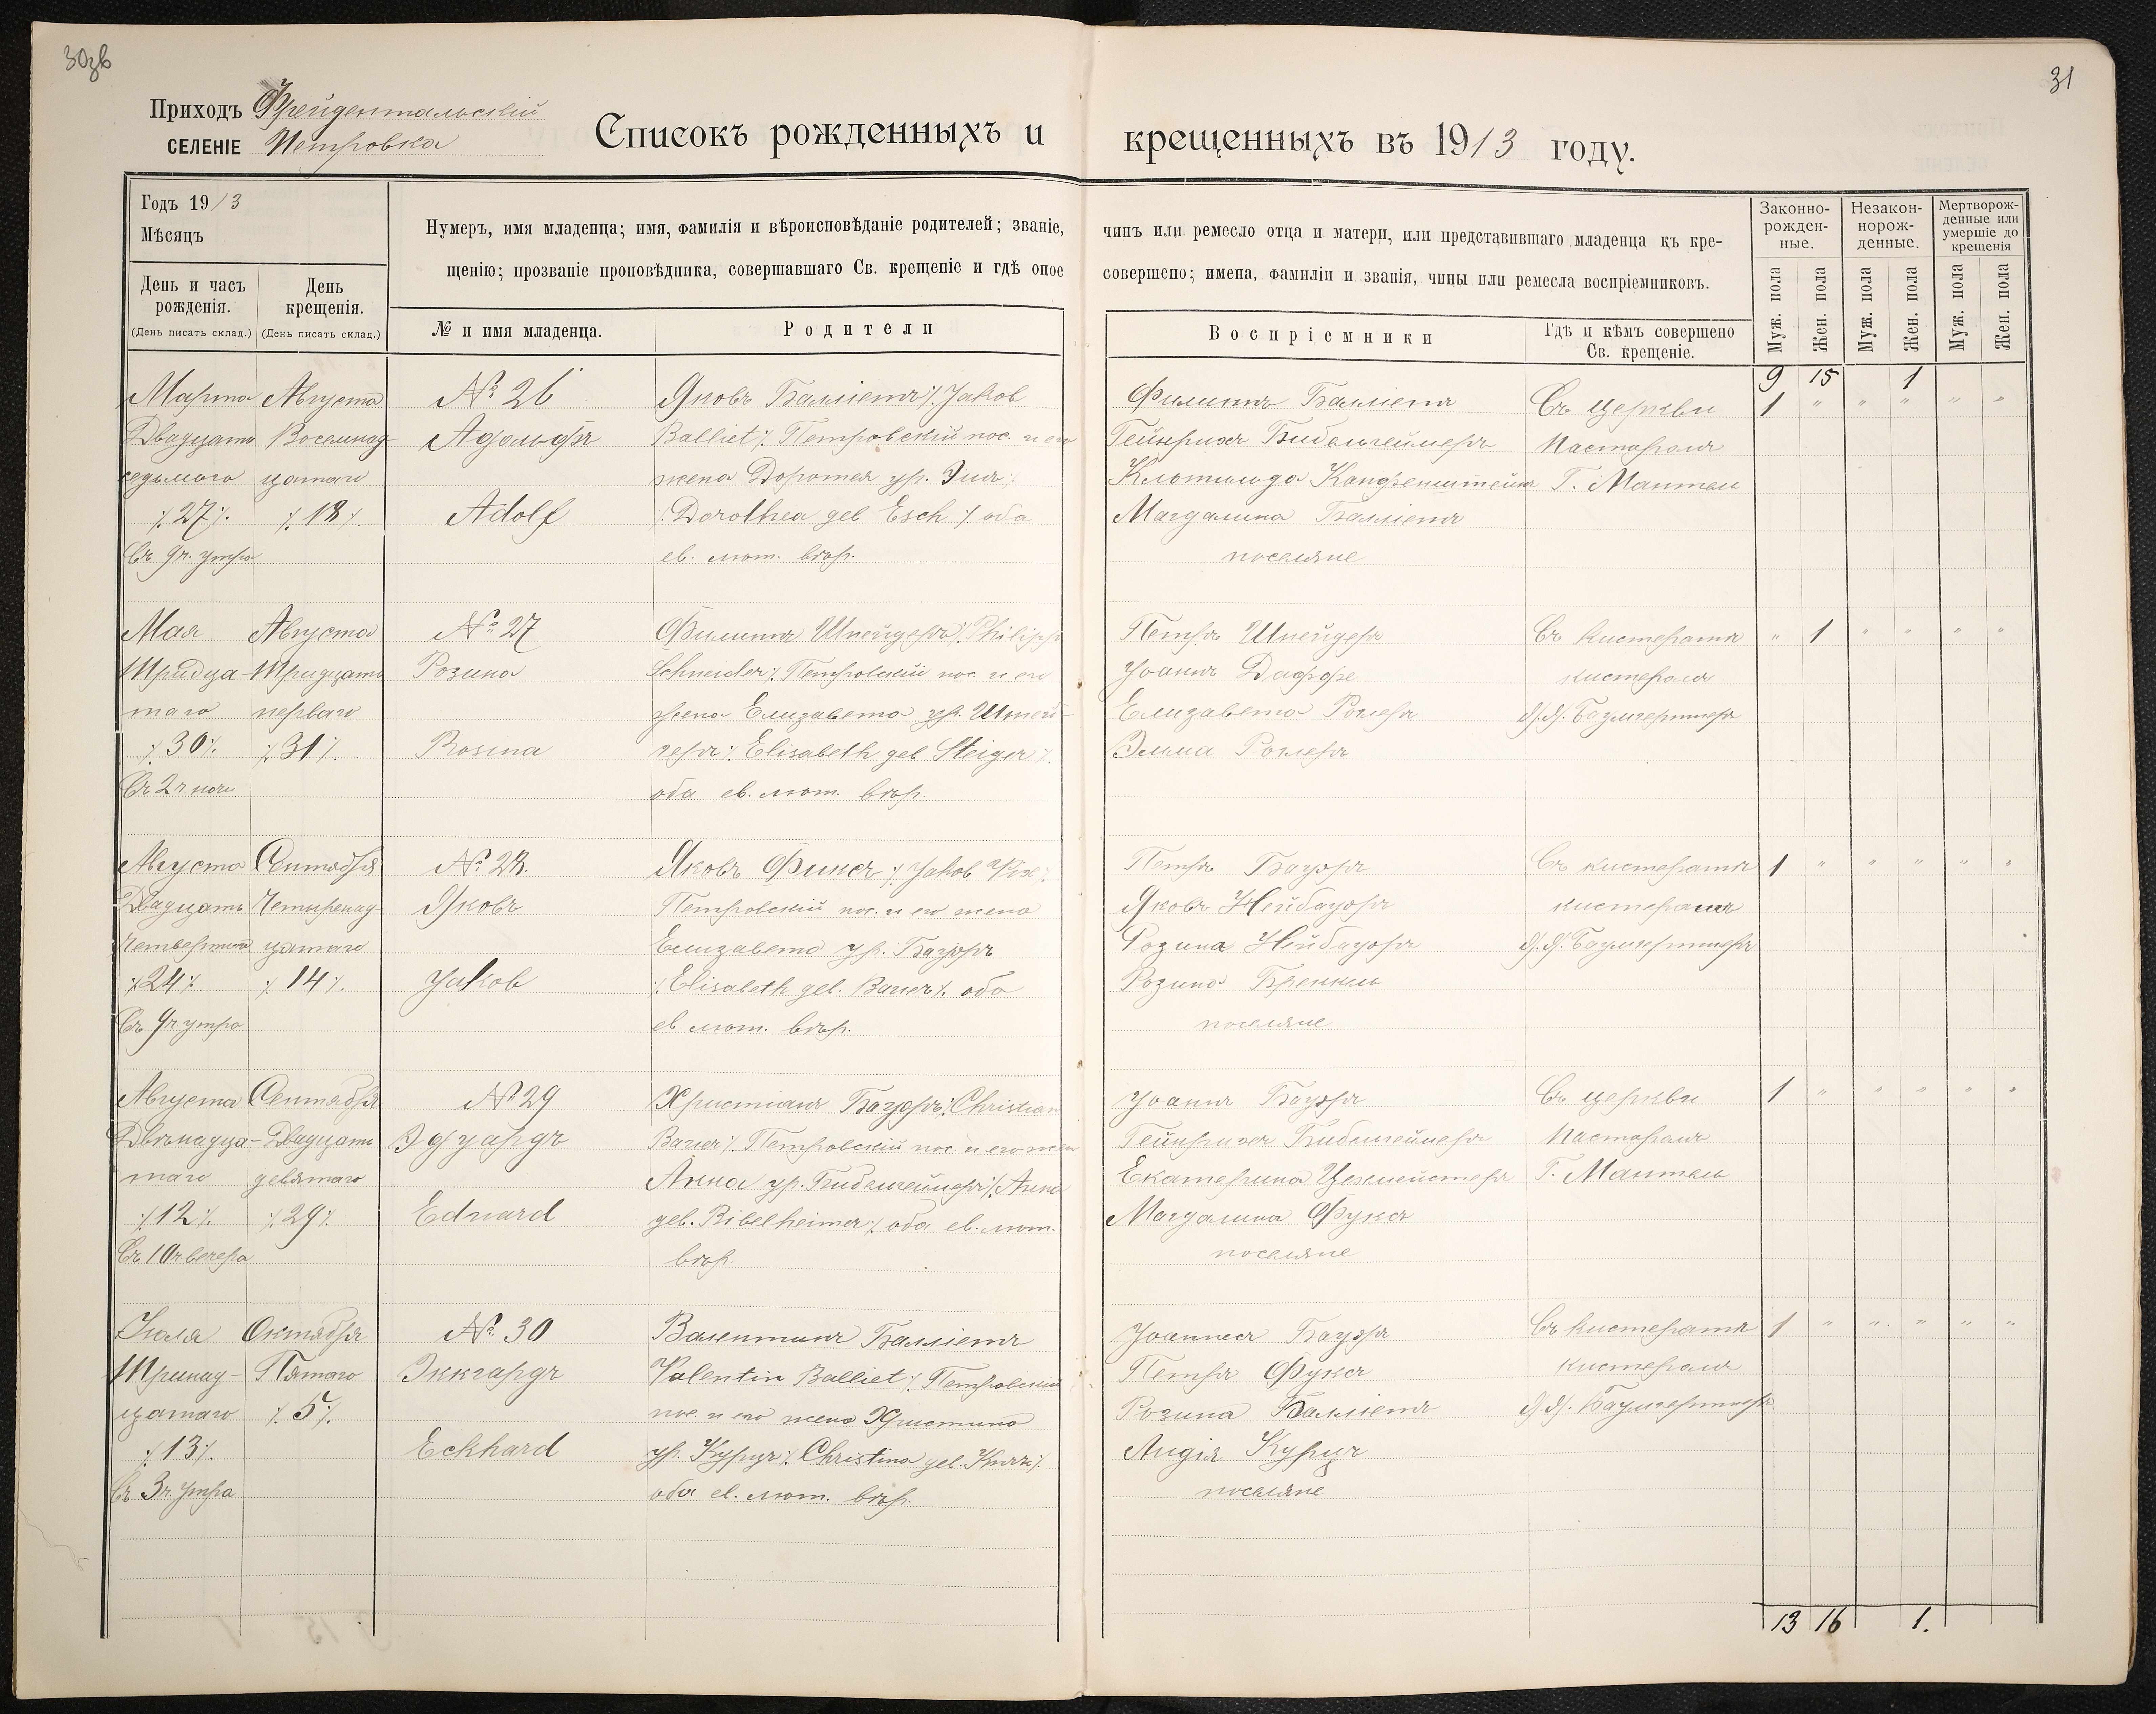 30зв
31
Приходъ Фрейдентальскій
СЕЛЕНІЕ Петровка
Списокъ рожденныхъ и крещенныхъ въ 1913 году.
Годъ 1913
Мѣсяцъ
День и часъ рожденія.
(День писать склад.)
День крещенія.
(День писать склад.)
Нумеръ, имя младенца; имя, фамилія и вѣроисповѣданіе родителей; званіе, чинъ или ремесло отца и матери, или представившаго младенца къ кре-
щенію; прозваніе проповѣдника, совершавшаго Св. крещеніе и гдѣ оное совершено; имена, фамиліи и званія, чины или ремесла воспріемниковъ.
№ и имя младенца.
Родители
Воспріемники
Гдѣ и кѣмъ совершено
Св. крещеніе.
Законно-
рожден-
ные.
Незакон-
норож-
денные.
Мертворож-
денные или
умершіе до
крещенія
Муж. пола
Жен. пола
Муж. пола
Жен. пола
Муж. пола
Жен. пола
9 15 1
Марта
Двадцать
седьмого
⁒ 27 ⁒
Въ 9 ч. утра
Августа
Восемнад-
цатаго
⁒ 18 ⁒
№ 26
Адольфъ
Adolf
Яковъ Балліетъ ⁒ Jakob
Balliet ⁒ Петровскій пос. и его
жена Доротея ур. Эшъ ⁒
⁒ Dorothea geb Esch ⁒ оба
ев. лют. вѣр.
Филиппъ Балліетъ
Гейнрихъ Бибельгеймеръ
Клотильда Капфенштейнъ
Магдалина Балліетъ
поселяне
Въ церкви
Пасторомъ
Г. Мантель
1 " " " " "
Мая
Тридца-
таго
⁒ 30 ⁒
Въ 2 ч. ночи
Августа
Тридцать
перваго
⁒ 31 ⁒
№ 27
Розина
Rosina
Филиппъ Шнейдеръ ⁒ Philipp
Schneider ⁒ Петровскій пос. и его
жена Елизавета ур. Штей-
геръ ⁒ Elisabeth geb Steiger ⁒
оба ев. лют. вѣр.
Петръ Шнейдеръ
Іоаннъ Даффе
Елизавета Ромеръ
Эмма Ромеръ
Въ кистератѣ
кистеромъ
Я. Я. Баумгертнеръ
" 1 " " " "
Августа
Двадцать
Четвертаго
⁒ 24 ⁒
Въ 9 ч утра
Сентября
Четырнад-
цатаго
⁒ 14 ⁒
№ 28.
Яковъ
Jakob
Яковъ Фиксъ ⁒ Jakob Fix ⁒
Петровскій пос. и его жена
Елизавета ур. Бауэръ
⁒ Elisabeth geb. Bauer ⁒ оба
ев. лют. вѣр.
Петръ Бауэръ
Яковъ Нейбауэръ
Розина Нейбауэръ
Розина Бренкль
поселяне
Въ кистератѣ
кистеромъ
Я. Я. Баумгертнеръ
1 " " " " "
Августа
Двѣнадца-
таго
⁒ 12 ⁒
Въ 10 ч вечера
Сентября
Двадцать
девятаго
⁒ 29 ⁒
№ 29
Эдуардъ
Eduard
Христіанъ Бауэръ ⁒ Christian
Bauer ⁒ Петровскій пос. и его жена
Анна ур. Бибельгеймеръ ⁒ Anna
geb. Bibelheimer ⁒ оба ев. лют.
вѣр.
Іоаннъ Бауэръ
Гейнрихъ Бибельгеймеръ
Екатерина Цехмейстеръ
Магдалина Фуксъ
поселяне
Въ церкви
Пасторомъ
Г. Мантель
1 " " " " "
Іюля
Тринад-
цатаго
⁒ 13 ⁒
Въ 3 ч. утра
Октября
Пятаго
⁒ 5 ⁒
№ 30
Эккгардъ
Eckhard
Валентинъ Балліетъ
Valentin Balliet ⁒ Петровскій
пос. и его жена Христина
ур. Курцъ ⁒ Christina geb. Kurz ⁒
оба ев. лют. вѣр.
Іоаннесъ Бауэръ
Петръ Фуксъ
Розина Балліетъ
Лидія Курцъ
поселяне
Въ кистератѣ
кистеромъ
Я. Я. Баумгертнеръ
1 " " " " "
13 16 1.